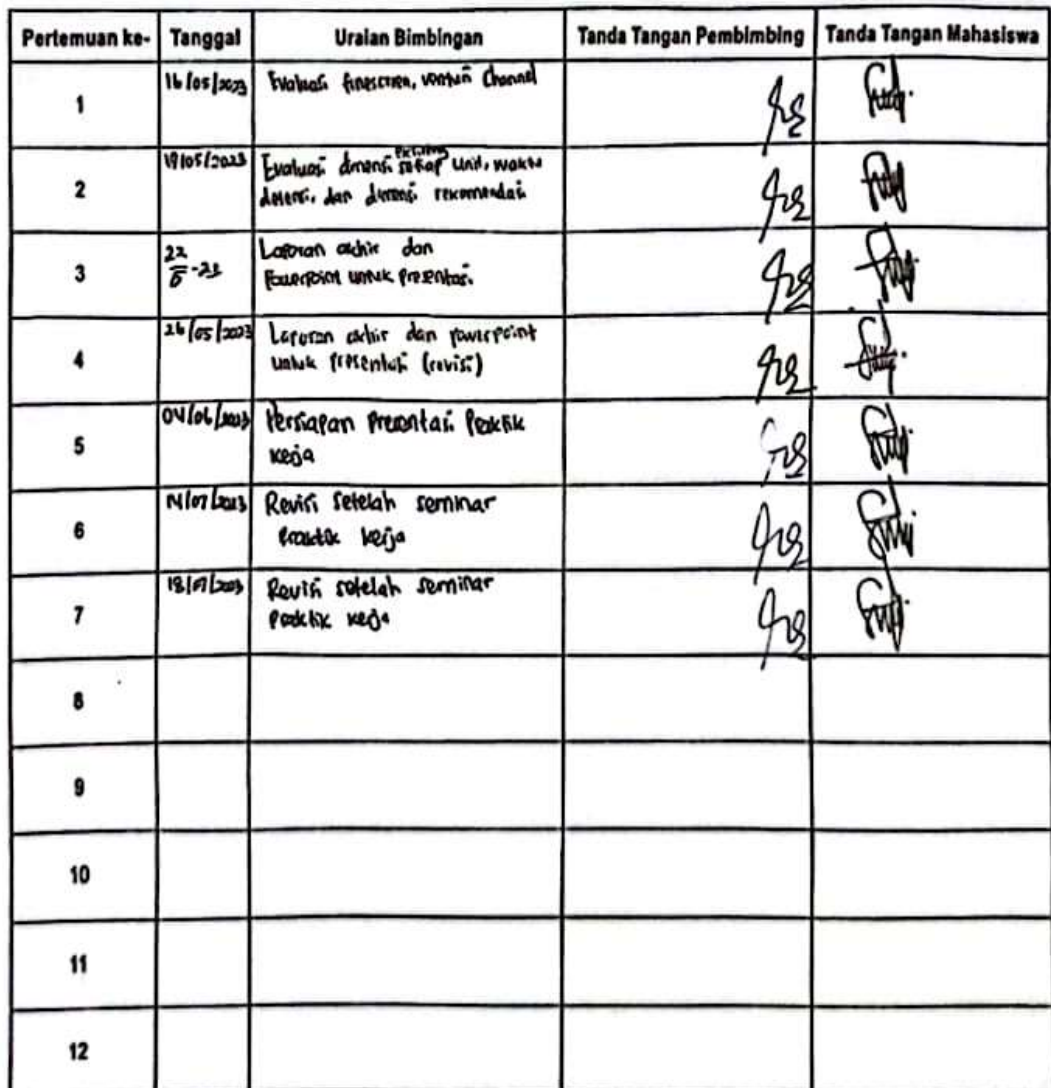 Pertemuan ke- Tanggal Uraian Bimbingan Tanda Tangan Pembimbing Tanda Tangan Mahasiswa
1 16/05/2023 Evaluasi finescreen, venturi channel
2 19/05/2023 Evaluasi dimensi setiap existing unit, waktu
detensi, dan dimensi rekomendasi
3 22 Laporan akhir dan
5 -23 Powerpoint untuk presentasi.
4 26/05/2023 Laporan akhir dan powerpoint
untuk presentasi (revisi)
5 04/06/2023 Persiapan Presentasi Praktik
kerja
6 14/07/2023 Revisi setelah seminar
praktik kerja
7 18/07/2023 Revisi setelah seminar
praktik kerja
8
9
10
11
12